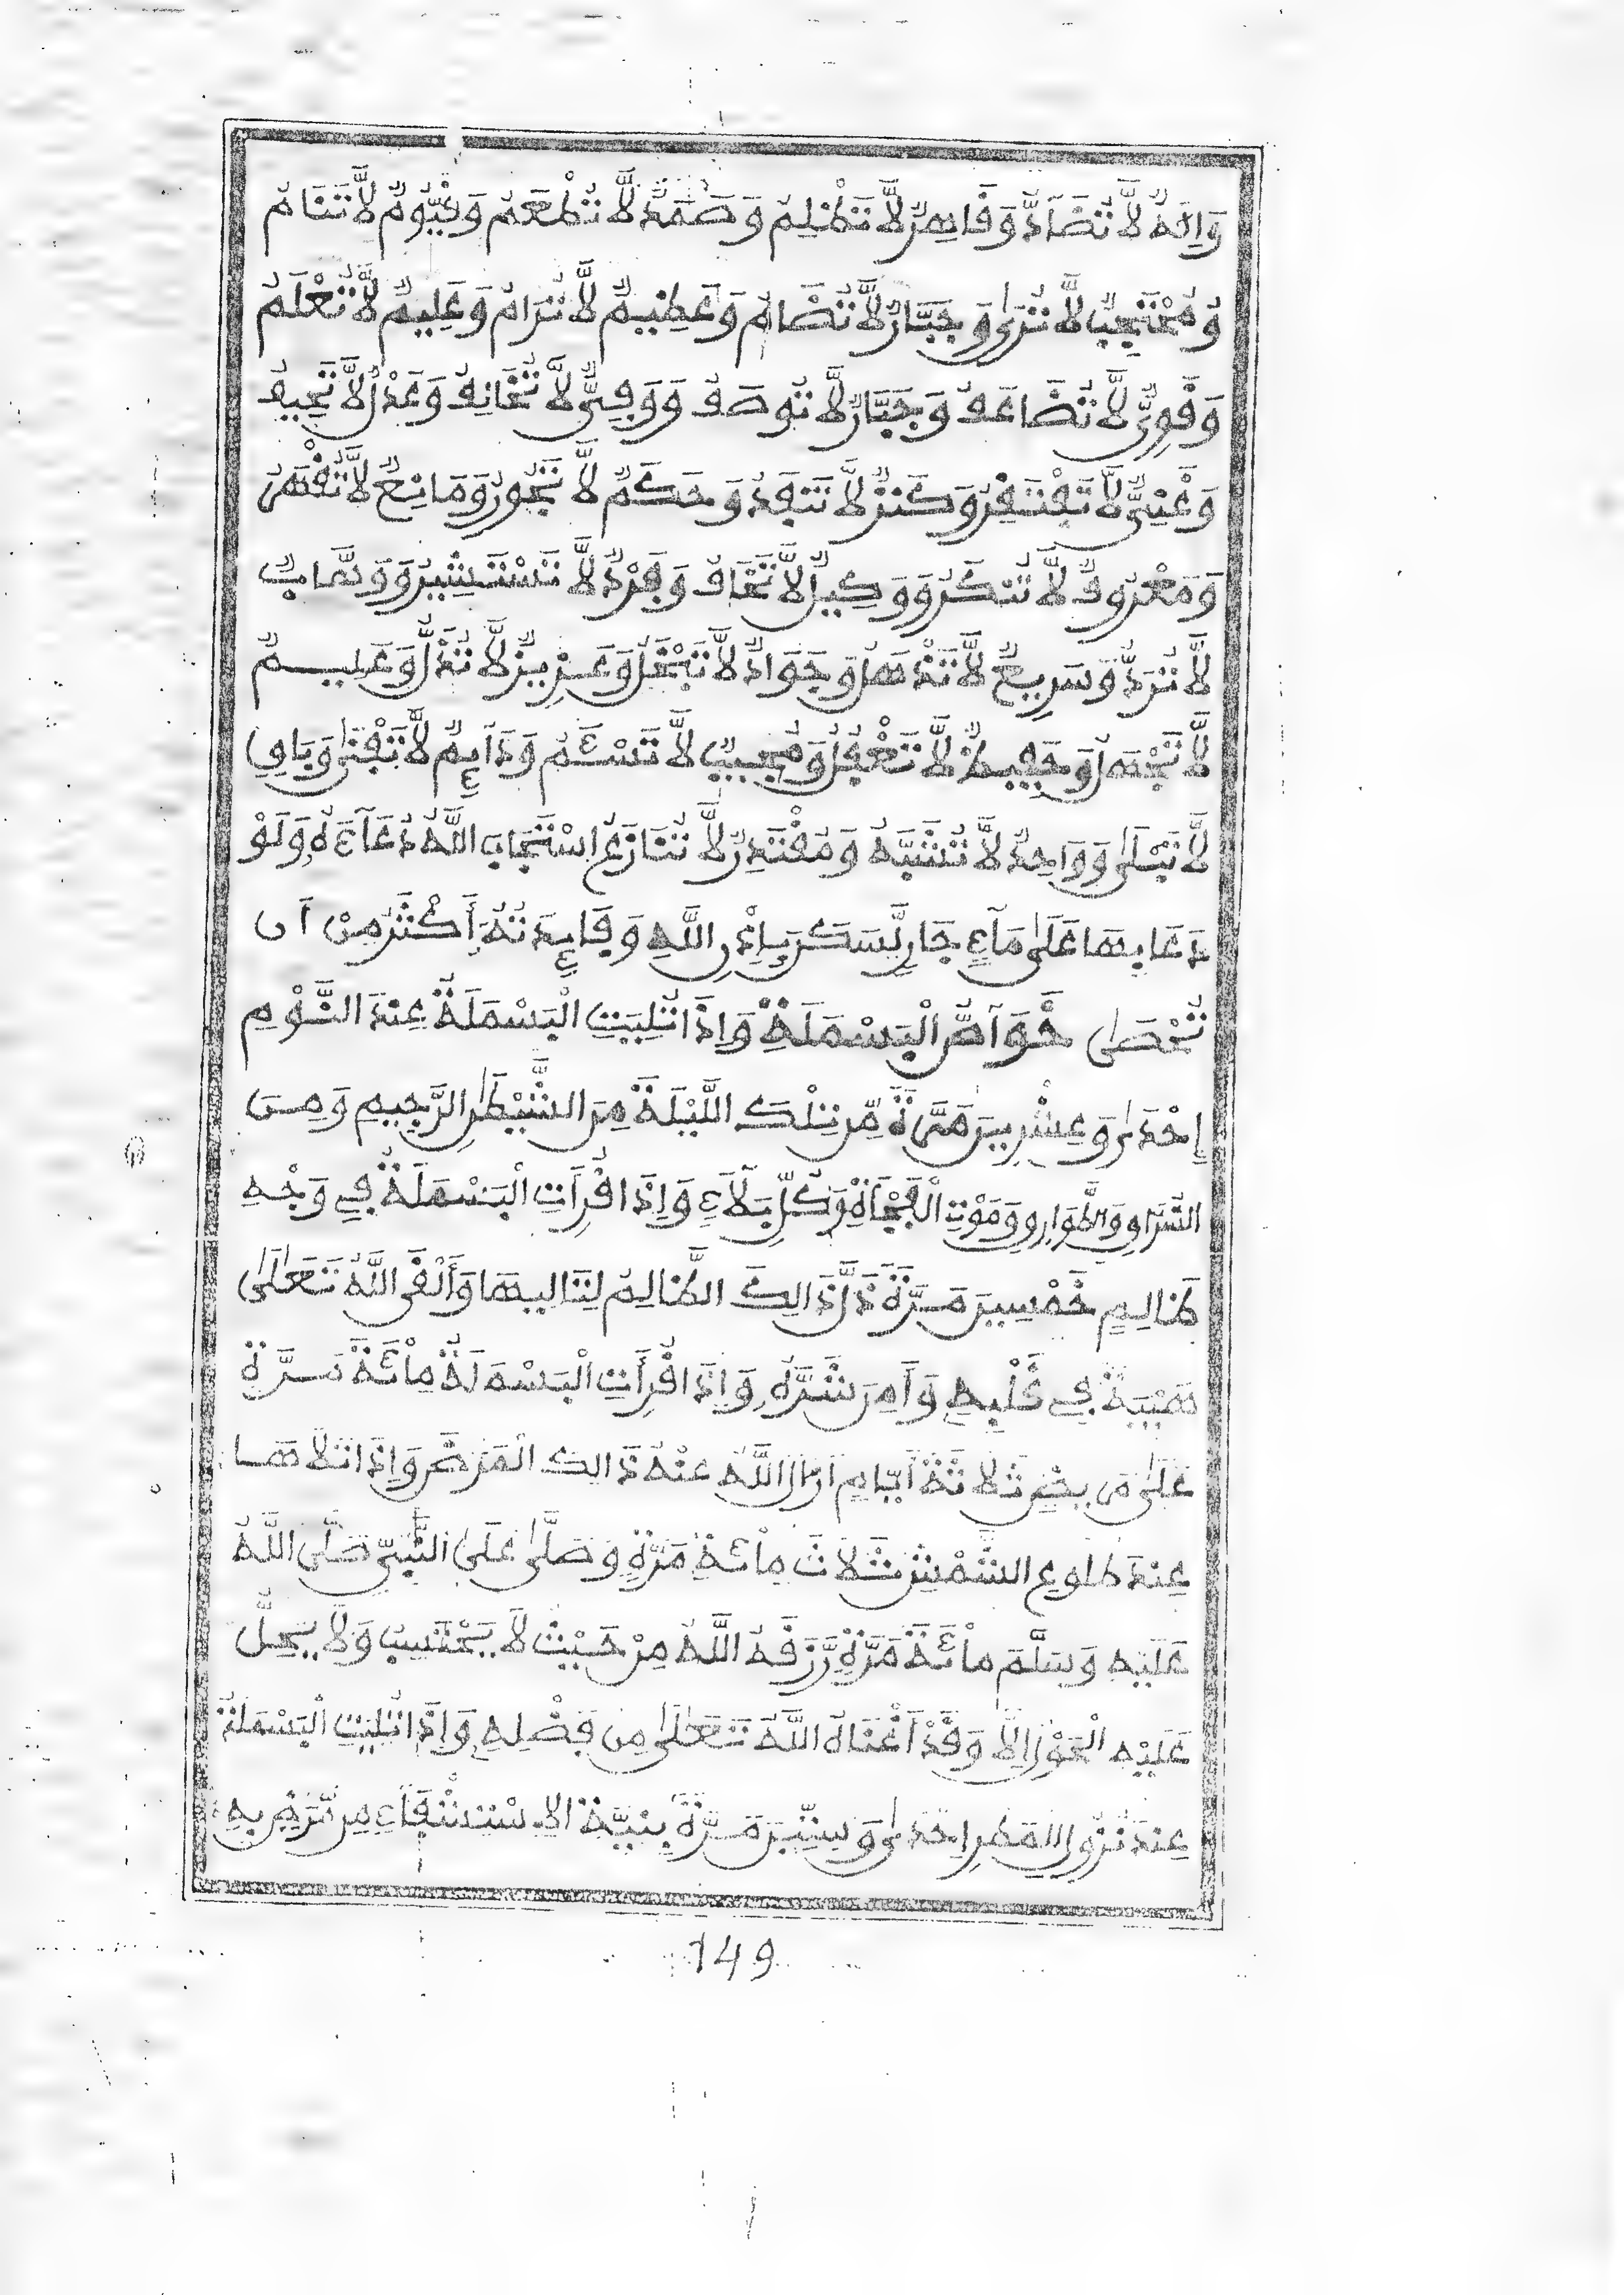 وَإِلَهٌ لَّا تُضَآدُّ وَقَاهِرٌ لَّا تَظْلِمُ وَصَمَدٌ لَّا تُطْعَمُ وَقَيُّومٌ لَّا تَنَامُ
وَمُحْتَجِبٌ لَّا تُرَىٰ وَجَبَّارٌ لَّا تُضَامُ وَعَظِيمٌ لَّا تُرَامُ وَعَلِيمٌ لَّا تُعْلَمُ
وَقَوِيٌّ لَّا تُضَاعَفُ وَجَبَّارٌ لَّا تُوصَفُ وَوَفِيٌّ لَّا تُخَالِفُ وَعَدْلٌ لَّا تَحِيفُ
وَغَنِيٌّ لَّا تَفْتَقِرُ وَكَنْزٌ لَّا تَنْفَدُ وَحَكَمٌ لَّا تَجُورُ وَمَانِعٌ لَّا تُقْهَرُ
وَمَعْرُوفٌ لَّا تُنْكَرُ وَوَكِيلٌ لَّا تَخَافُ وَفَرْدٌ لَّا تَسْتَشِيرُ وَوَهَّابٌ
لَّا تُرَدُّ وَسَرِيعٌ لَّا تَذْهَلُ وَجَوَادٌ لَّا تَبْخَلُ وَعَزِيزٌ لَّا تُذَلُّ وَعَلِيمٌ
لَّا تَجْهَلُ وَحَفِيظٌ لَّا تَغْفُلُ وَمُجِيبٌ لَّا تَسْئَمُ وَدَآئِمٌ لَّا تَفْنَىٰ وَبَاقٍ
لَّا تَبْلَىٰ وَوَاحِدٌ لَّا تُشَبَّهُ وَمُقْتَدِرٌ لَّا تُنَازَعُ اسْتَجَابَ اللَّهُ دُعَآءَهُ وَلَوْ
دَعَا بِهَا عَلَىٰ مَآءٍ جَارٍ لَّسَكَنَ بِإِذْنِ اللَّهِ وَفَائِدَتُهُ أَكْثَرُ مِنْ أَن
تُحْصَىٰ خَوَآصُّ الْبَسْمَلَةِ وَإِذَا تُلِيَتِ الْبَسْمَلَةُ عِنْدَ النَّوْمِ
إِحْدَىٰ وَعِشْرِينَ مَرَّةً مِّن تِلْكَ اللَّيْلَةَ مِنَ الشَّيْطَٰنِ الرَّجِيمِ وَمِنَ
السُّرَّاقِ وَالطَّوَارِقِ وَمَوْتِ الْفَجْأَةِ وَكُلِّ بَلَآءٍ وَإِذَا قُرِأَتِ الْبَسْمَلَةُ فِي وَجْهِ
ظَالِمٍ خَمْسِينَ مَرَّةً ذَلَّ ذَالِكَ الظَّالِمُ لِتَالِيهَا وَأَلْقَى اللَّهُ تَعَالَىٰ
هَيْبَةً فِي قَلْبِهِ وَأَمِنَ شَرَّهُ وَإِذَا قُرِأَتِ الْبَسْمَلَةُ مِائَةَ مَرَّةٍ
عَلَىٰ مَرِيضٍ ثَلَاثَةَ أَيَّامٍ أَزَالَ اللَّهُ عَنْهُ ذَالِكَ الْمَرَضَ وَإِذَا تَلَاهَا
عِنْدَ طُلُوعِ الشَّمْسِ ثَلَاثَ مِائَةِ مَرَّةٍ وَصَلَّىٰ عَلَى النَّبِيِّ صَلَّى اللَّهُ
عَلَيْهِ وَسَلَّمَ مِائَةَ مَرَّةٍ رَّزَقَهُ اللَّهُ مِنْ حَيْثُ لَا يَحْتَسِبُ وَلَا يَحِلُّ
عَلَيْهِ الْعَوْزُ إِلَّا وَقَدْ أَغْنَاهُ اللَّهُ تَعَالَىٰ مِن فَضْلِهِ وَإِذَا تُلِيَتِ الْبَسْمَلَةُ
عِنْدَ نُزُولِ الْمَطَرِ إِحْدَىٰ وَسِتِّينَ مَرَّةً بِنِيَّةِ الِاسْتِسْقَاءِ مِن بِهِ
149